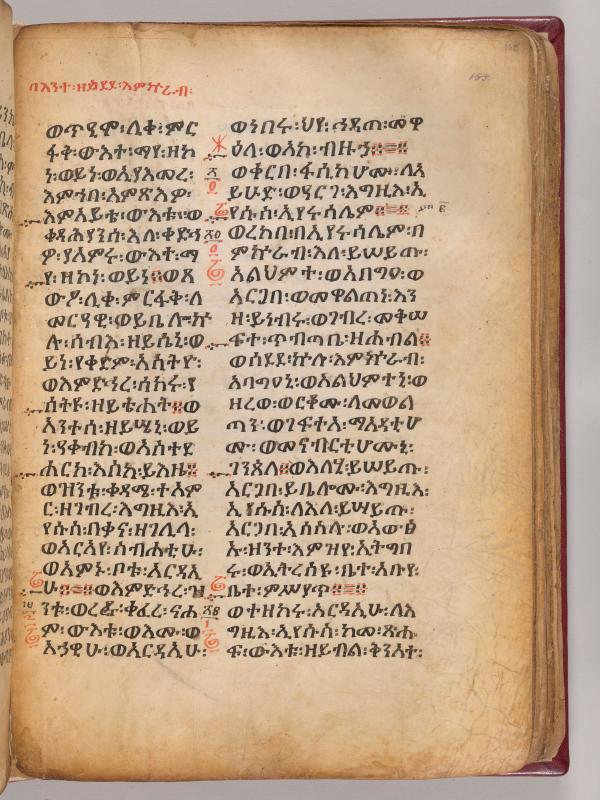 በእንተ፡ዘሰደደ፡እምኵራብ፡
ወጥዒሞ፡ሊቀ፡ምር
ፋቅ፡ውእተ፡ማየ፡ዘኮ
ነ፡ወይነ፡ወኢያእመረ፡
እምኀበ፡አምጽእዎ፡
እምአይቴ፡ውእቱ፡ወ
ቀዳሕያንሰ፡እለ፡ቀድሑ
ዎ፡ያአምሩ፡ውእተ፡ማ
የ፡ዘኮነ፡ወይነ፨ወጸ
ውዖ፡ሊቀ፡ምርፋቅ፡ለ
መርዓዊ፡ወይቤሎ፡ኵ
ሉ፡ሰብእ፡ዘይሴኒ፡ወ
ይነ፡ያቀድም፡አስትዮ፡
ወእምድኅረ፡ሰክሩ፡የ
ሰትዩ፡ዘይቴሐት፨ወ
አንተሰ፡ዘይሤኒ፡ወይ
ነ፡ዓቀብከ፡ወአስተደ
ሐርከ፡እስከ፡ይእዜ፨
ወዝንቱ፡ቀዳሚ፡ተአም
ር፡ዘገብረ፡እግዚእ፡ኢ
የሱስ፡በቃና፡ዘገሊላ፡
ወአርአየ፡ስብሐቲሁ፡
ወአምኑ፡ቦቱ፡አርዳኢ
ሁ፨ወእምድኅረ፡ዝ
ንቱ፡ወረደ፡ቅፈረ፡ናሐ
ም፡ውእቱ፡ወእሙ፡ወ
አኀዊሁ፡ወአርዳኢሁ፡
ወነበሩ፡ህየ፡ኅዳጠ፡መዋ
ዕለ፡ወአኮ፡ብዙኀ፨
ወቀርበ፡ፋሲካሆሙ፡ለአ
ይሁድ፡ወዓርገ፡እግዚእ፡ኢ
የሱስ፡ኢየሩሳሌም፨
ወረከበ፡በኢየሩሳሌም፡በ
ምኵራብ፡እለ፡ይሠይጡ፡
አልህምተ፡ወአባግዐ፡ወ
አርጋበ፡ወመዋልጠነ፡እን
ዘ፡ይነብሩ፡ወገብረ፡መቅሠ
ፍተ፡ጥብጣቤ፡ዘሐብል፨
ወሰደደ፡ኵሎ፡እምኵራብ፡
አባግዐኒ፡ወአልህምተኒ፡ወ
ዘረወ፡ወርቆሙ፡ለመወል
ጣን፡ወገፍትአ፡ማእዳቲሆ
ሙ፡ወመናብርቲሆሙኒ፡
ገንጰለ፨ወለእለሂ፡ይሠይጡ፡
አርጋበ፡ይቤሎሙ፡እግዚእ፡
ኢየሱስ፡ለእለ፡ይሠይጡ፡
አርጋበ፡አሰስሉ፡ወአውፅ
ኡ፡ዘንተ፡እምዝየ፡ኢትግበ
ሩ፡ወኢትረስዩ፡ቤተ፡አቡየ፡
ቤተ፡ምሥያጥ፨
ወተዘከሩ፡አርዳኢሁ፡ለእ
ግዚእ፡ኢየሱስ፡ከመ፡ጽሑ
ፍ፡ውእቱ፡ዘይብል፡ቅንአተ፡